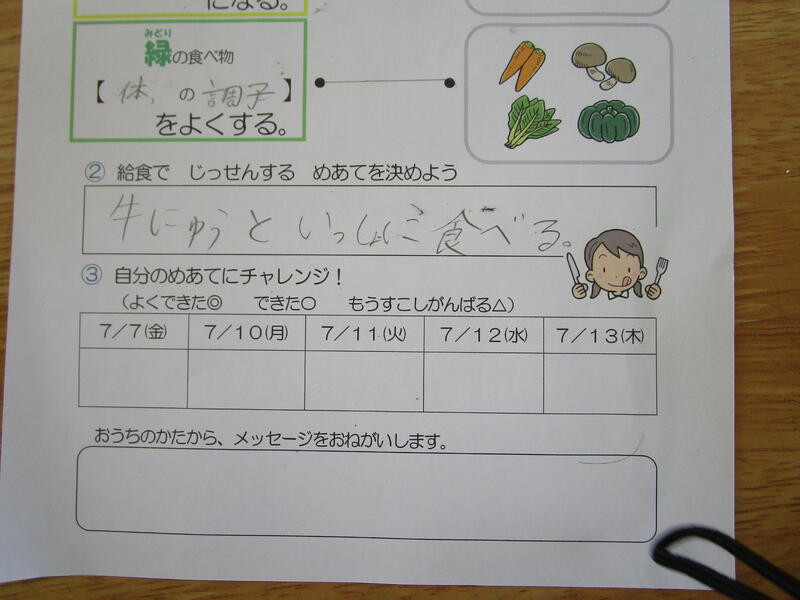 になる。
みどり
緑の食べ物
【体の調子】
をよくする。
② 給食で じっせんする めあてを決めよう
牛にゅうといっしょに食べる。
③ 自分のめあてにチャレンジ！
（よくできた◎ できた○ もうすこしがんばる△）
7／7(金) 7／10(月) 7／11(火) 7／12(水) 7／13(木)
おうちのかたから、メッセージをおねがいします。